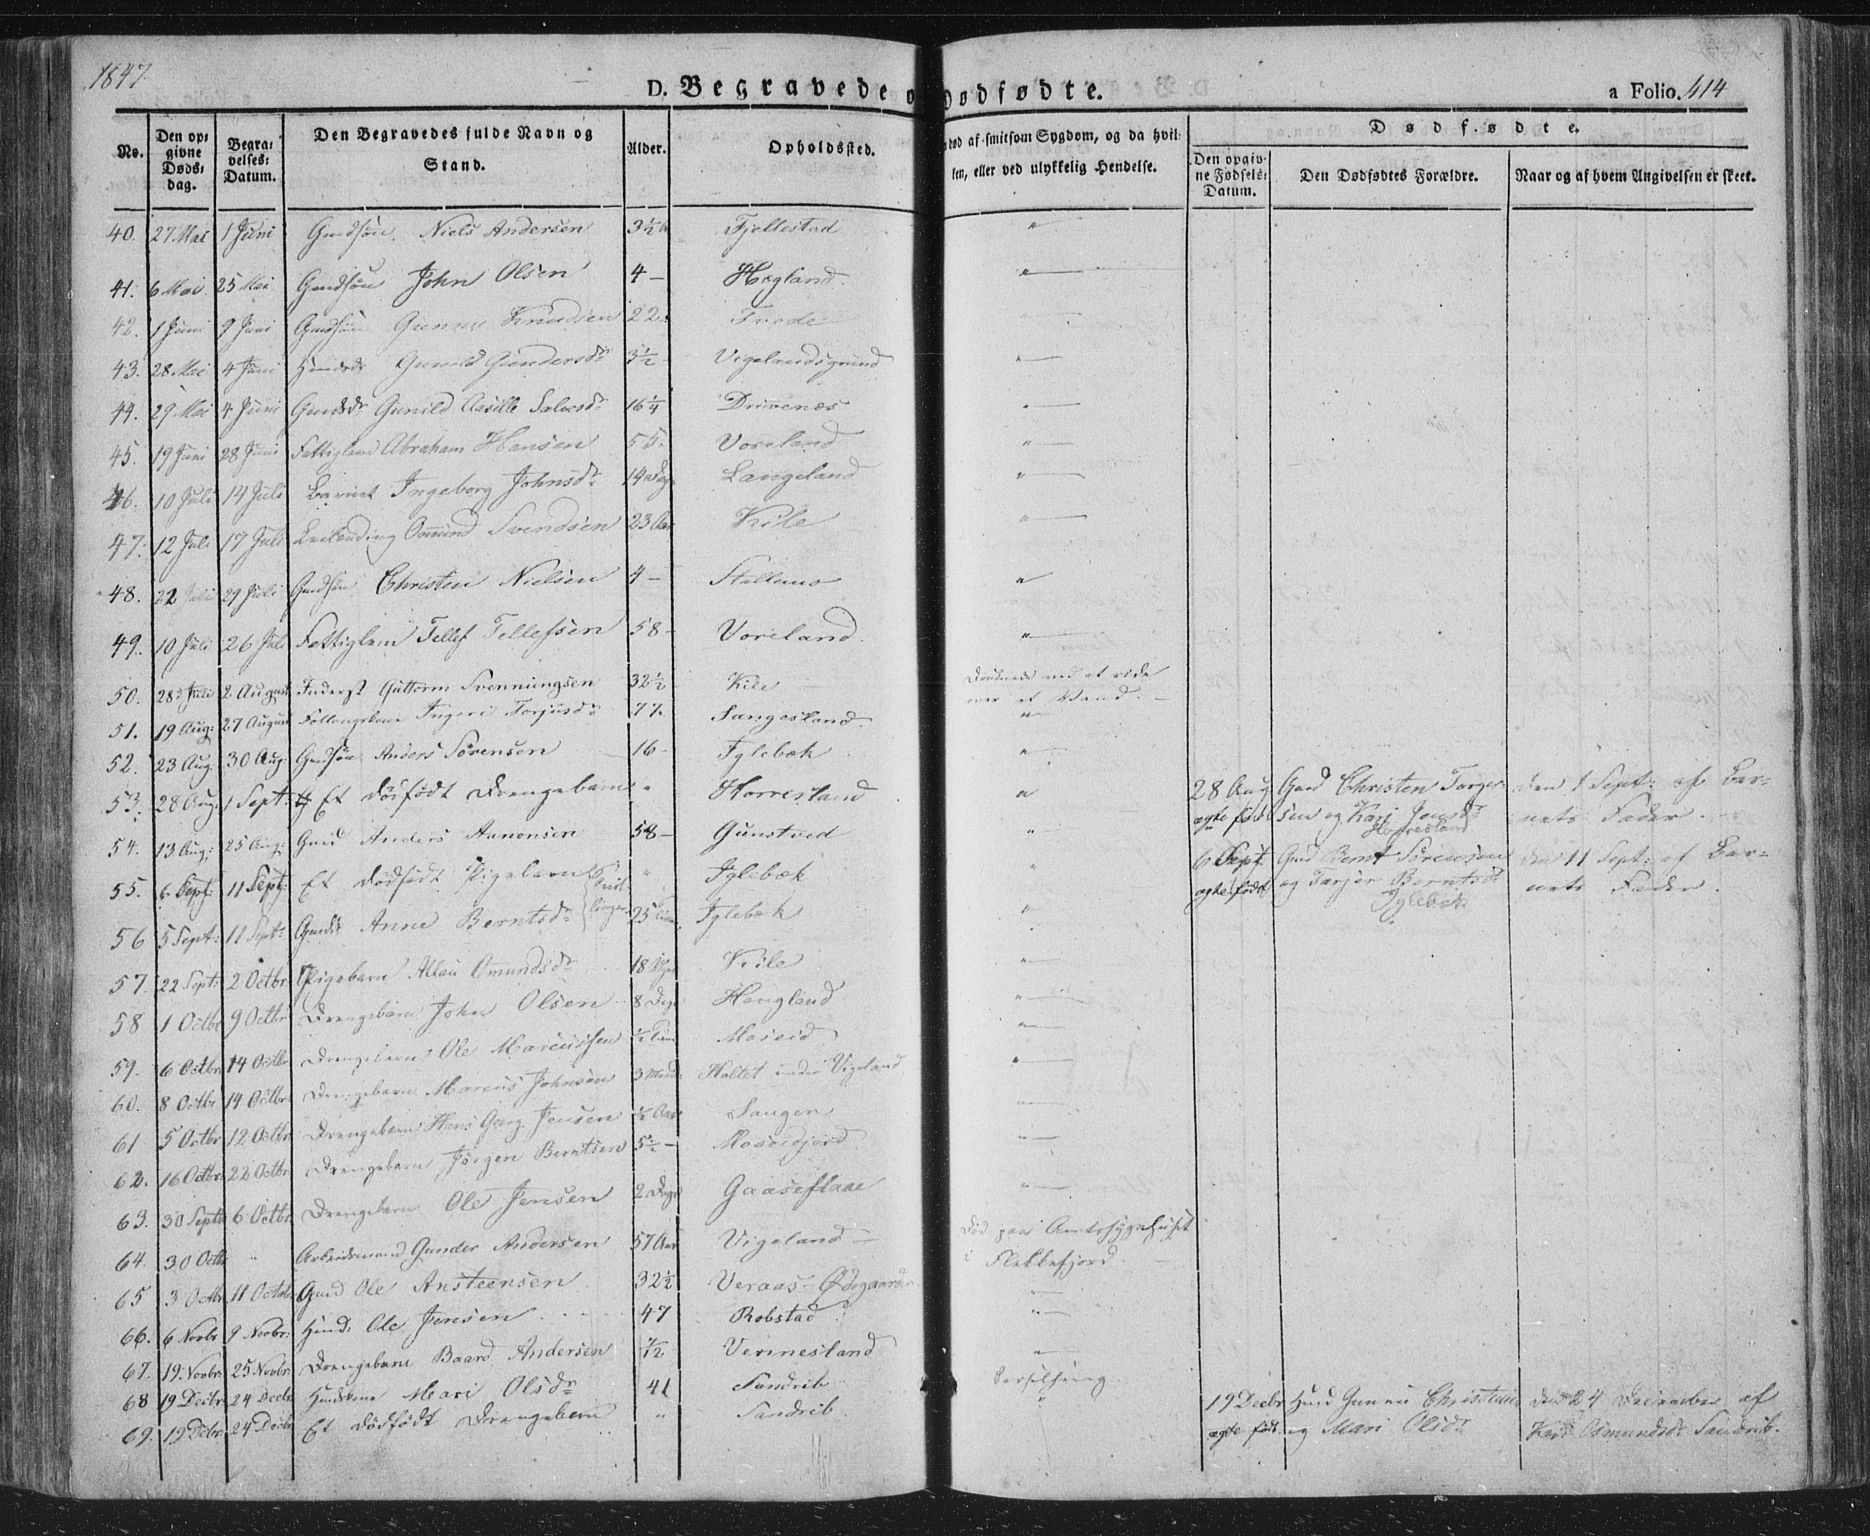 1847.
D. Begravede o Dødfødte.
a Folio. 414
No.
Den op- givne Døds- dag.
Begra- velses- Datum.
Den Begravedes fulde Navn og Stand.
Alder.
Opholdssted.
død af smitsom Sygdom, og da hvil- ken, eller ved ulykkelig Hendelse.
Dødfødte.
Den opgiv- ne Fødsels- Datum.
Den Dødfødtes Forældre.
Naar og af hvem Angivelsen er skeet.
40. 27 Mai 1 Juni Gmdsøn Niels Andersen 3½ Fjellestad "
41. 6 Mai 25 Mai Gmdsøn John Olsen 4 — Hægland "
42. 1 Juni 9 Juni Gmdsøn Gunnar Knudsen 22 Tvede
43. 28 Mai 4 Juni Gunild Gundersdr 3½ Vigelandsgrund "
44. 29 Mai 4 Juni Gmdsdr Gunild Aasille Salvesdr 16¼ Drivenæs "
45. 19 Juni 28 Juni Fattiglem Abraham Hansen 55. Voreland "
46. 10 Juli 14 Juli Barnet Ingeborg Johnsdr 14 Dage Langeland "
47. 12 Juli 17 Juli Leilænding Omund Svendsen 23 Aar Kile "
48. 22 Juli 29 Juli Gmdsøn Christen Nielsen 4 — "
49. 10 Juli 26 Juli Fattiglem Tellef Tellefsen 58 — Voreland "
50. 28 Juli 2 August Inderst Guttorm Svenningsen 32½ Kile Druknede ved at ride over et Vand.
51. 19 Aug: 27 August Ingeri Torjusdr 77. Sangesland "
52. 23 Aug. 30 Aug: Gmdsøn Anders Sørensen 16 — Iglebæk "
53. 28 Aug. 1 Sept: Et dødfødt Drengebarn " Horresland " 28 Aug Gmd Christen Torger- den 1 Sept: af Bar-
ægte født sen og Kari Jensdr Horresland nets Fader.
54. 13 Aug: 25 Aug: Gmd Anders Aanonsen 58 — Gunstved "
55. 6 Sept: 11 Sept: Et dødfødt Pigebarn Tvil- linger " Iglebæk " 6 Sept. Gmd Bernt Sørensen den 11 Sept: af Bar-
ægte født og Tarjer Berntsdr Iglebæk nets Fader.
56 5 Sept: 11 Sept: Gmdsdr Anne Berntsdr 25 Iglebæk "
57. 22 Sept: 2 Octbr. Pigebarn Omundsdr 18 Kile "
58 1 Octbr 9 Octbr Drengebarn John Olsen 8 Dage Hougland "
59. 6 Octbr 14 Octbr Drengebarn Ole Marcussen ½ Moseid "
60. 8 Octbr 14 Octbr Drengebarn Marcus Johnsen 3 Maan: Holtet under Vigeland "
61 5 Octbr 12 Octbr Drengebarn Hans Georg Jensen ½ Aar Saugen "
62. 16 Octbr 22 Octbr Drengebarn Jörgen Berntsen 5½ — Moseidjord "
63. 30 Septbr 6 Octbr Drengebarn Ole Jensen 2 Dage Gaaseflaae "
64. 30 Octbr " Arbeidsmand Gunder Andersen 57 Aar Vigeland — Død paa Amtssygehuset i Flekkefjord.
65 3 Octbr 11 Octobr Gmd Ole Ansteensen 32½ Veraas-Ødegaarden "
66. 6 Novbr 9 Novbr: Huusmd: Ole Jensen 47 Robstad "
67. 19. Novbr. 25 Novbr. Drengebarn Baard Andersen 7/12 Verinesland "
68 19 Decbr 24 Decbr Mari Olsdr 41 Sandrib Barselseng.
69. 19 Decbr 24 Decbr Et dødfødt Drengebarn " Sandrib. " 19 Decbr Huusmd Gunnar Christens den 24 December af
ægte født og Mari Olsdr Kari Osmundsdr Sandrib.